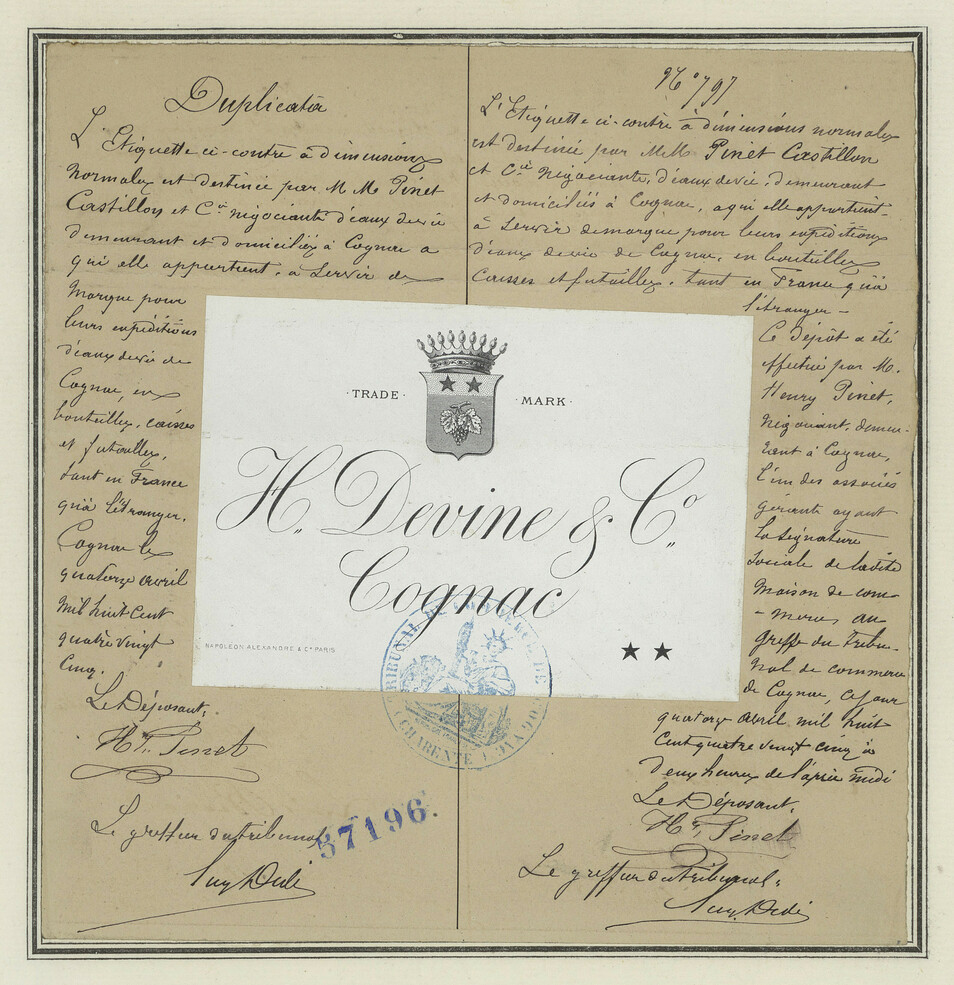 Duplicata
L'Etiquette ci-contre à dimensions
normales est destinée par M M Pinet
Castillon et Cie négociants d'eaux de vie
demeurant et domiciliés à Cognac a
qui elle appartient, à servir de
marque pour
leurs expéditions
d'eaux de vie de
Cognac, en
bouteilles, caisses
et futailles,
tant en France
qu'à l'étranger.
Cognac le
quatorze avril
mil huit cent
quatre vingt
cinq.
Le Déposant,
Hry Pinet
Le greffier du tribunal
37196.
N° 797
L'Etiquette ci-contre à dimensions normales
est destinée par M.M. Pinet Castillon
et Cie négociants, d'eaux de vie, demeurant
et domiciliés à Cognac, a qui elle appartient
à servir de marque pour leurs expéditions
d'eaux de vie de Cognac, en bouteilles
caisses et futailles, tant en France qu'à
l'étranger —
Ce dépôt a été
effectué par M.
Henry Pinet,
négociant, demeu-
rant à Cognac,
l'un des associés
gérants ayant
la signature
sociale de ladite
maison de com-
-merce, au
greffe du tribu-
nal de commerce
de Cognac, ce jour
quatorze avril mil huit
cent quatre vingt cinq à
deux heures de l'après midi
Le Déposant,
Hry Pinet
Le greffier du tribunal,
TRADE MARK
H. Devine & Co.
Cognac
NAPOLÉON ALEXANDRE & Cie PARIS
★★
TRIBUNAL DE COMMERCE DE
COGNAC (CHARENTE)